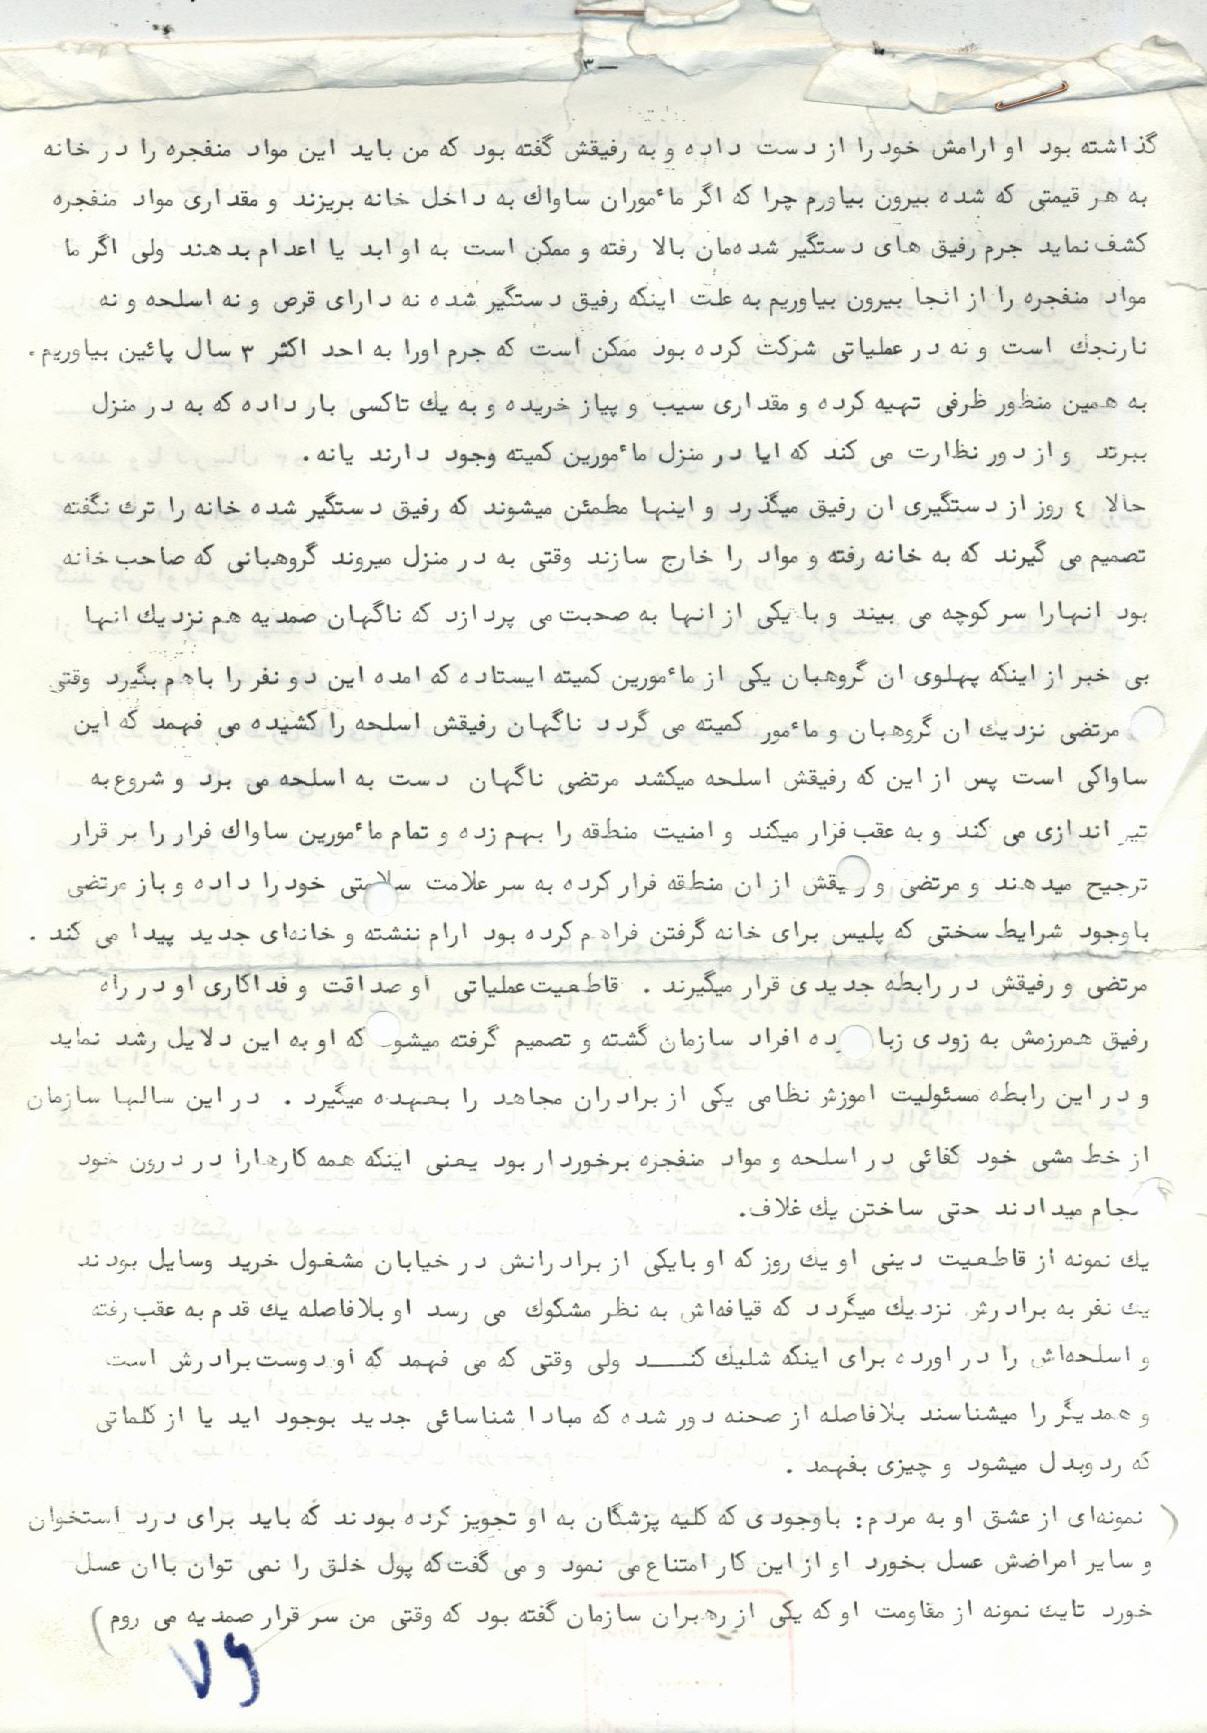 ۳ —
گذاشته بود او ارامش خود را از دست داده و به رفیقش گفته بود که من باید این مواد منفجره را در خانه
به هر قیمتی که شده بیرون بیاورم چرا که اگر مأموران ساواك به داخل خانه بریزند و مقداری مواد منفجره
کشف نماید جرم رفیق های دستگیر شده‌مان بالا رفته و ممکن است به او ابد یا اعدام بدهند ولی اگر ما
مواد منفجره را از انجا بیرون بیاوریم به علت اینکه رفیق دستگیر شده نه دارای قرص و نه اسلحه و نه
نارنجك است و نه در عملیاتی شرکت کرده بود ممکن است که جرم اورا به احد اکثر ۳ سال پائین بیاوریم.
به همین منظور ظرفی تهیه کرده و مقداری سیب و پیاز خریده و به یك تاکسی بار داده که به در منزل
ببرتد و از دور نظارت می کند که ایا در منزل مأمورین کمیته وجود دارند یانه.
حالا ٤ روز از دستگیری ان رفیق میگذرد و اینها مطمئن میشوند که رفیق دستگیر شده خانه را ترك نگفته
تصمیم می گیرند که به خانه رفته و مواد را خارج سازند وقتی به در منزل میروند گروهبانی که صاحب خانه
بود انهارا سر کوچه می بیند و با یکی از انها به صحبت می پردازد که ناگهان صمدیه هم نزدیك انها
بی خبر از اینکه پهلوی ان گروهبان یکی از مأمورین کمیته ایستاده که امده این دو نفر را باهم بگیرد وقتی
مرتضی نزدیك ان گروهبان و مأمور کمیته می گردد ناگهان رفیقش اسلحه را کشیده می فهمد که این
ساواکی است پس از این که رفیقش اسلحه میکشد مرتضی ناگهان دست به اسلحه می برد و شروع به
تیر اندازی می کند و به عقب فرار میکند و امنیت منطقه را بهم زده و تمام مأمورین ساواك فرار را بر قرار
ترجیح میدهند و مرتضی و ر یقش از ان منطقه فرار کرده به سر علامت سلامتی خود را داده و باز مرتضی
باوجود شرایط سختی که پلیس برای خانه گرفتن فراهم کرده بود ارام ننشته و خانه‌ای جدید پیدا می کند .
مرتضی و رفیقش در رابطه جدیدی قرار میگیرند . قاطعیت عملیاتی او صداقت و فداکاری او در راه
رفیق همرزمش به زودی زبا ده افراد سازمان گشته و تصمیم گرفته میشو که او به این دلایل رشد نماید
و در این رابطه مسئولیت اموزش نظامی یکی از برادران مجاهد را بعهده میگیرد . در این سالها سازمان
از خط مشی خود کفائی در اسلحه و مواد منفجره برخوردار بود یعنی اینکه همه کارهارا در درون خود
نجام میدادند حتی ساختن یك غلاف.
یك نمونه از قاطعیت دینی او یك روز که او بایکی از برادرانش در خیابان مشغول خرید وسایل بودند
یك نفر به برادرش نزدیك میگردد که قیافه‌اش به نظر مشکوك می رسد او بلافاصله یك قدم به عقب رفته
و اسلحه‌اش را در اورده برای اینکه شلیك کنـــد ولی وقتی که می فهمد که او دوست برادرش است
و همدیگر را میشناسند بلافاصله از صحنه دور شده که مبادا شناسائی جدید بوجود اید یا از کلماتی
که ردوبدل میشود و چیزی بفهمد .
( نمونه‌ای از عشق او به مردم: باوجودی که کلیه پزشگان به او تجویز کرده بودند که باید برای درد استخوان
و سایر امراضش عسل بخورد او از این کار امتناع می نمود و می گفت که پول خلق را نمی توان باان عسل
خورد تایك نمونه از مقاومت او که یکی از رهبران سازمان گفته بود که وقتی من سر قرار صمدیه می روم )
۷۶